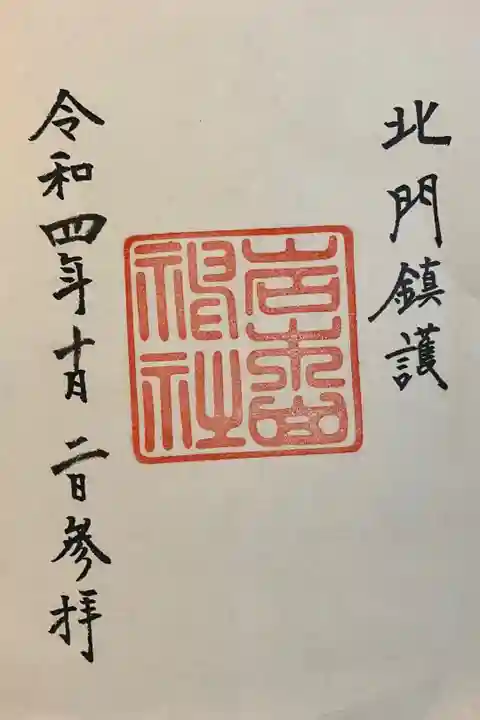 北門鎮護
岩木山
神社
令和四年十月二日參拝